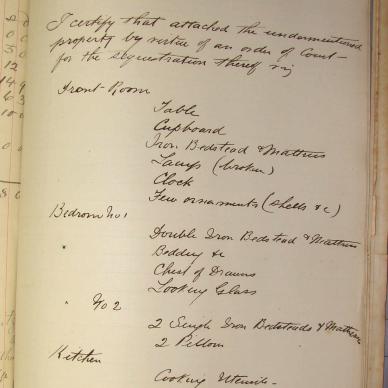 I certify that attached the undermentioned
property by virtue of an order of Court
for the sequestration thereof viz
Front Room
Table
Cupboard
Iron Bedstead & Mattress
Lamp (broken)
Clock
Few ornaments (shells &c)
Bedroom No 1
Double Iron Bedstead & Mattress
" Bedding &c
Chest of Drawers
Looking Glass
" No 2
2 Single Iron Bedsteads & Mattress
2 Pillows
Kitchen
Cooking Utensils